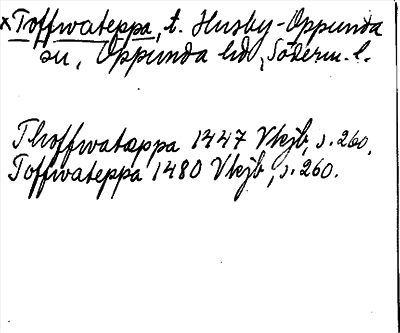 ×Toffwateppa, t. Husby-Oppunda
sn, Oppunda hd, Söderm. l.
Thoffwatæppa 1447 Vkjb, s. 260.
Toffwateppa 1480 Vkjb, s. 260.